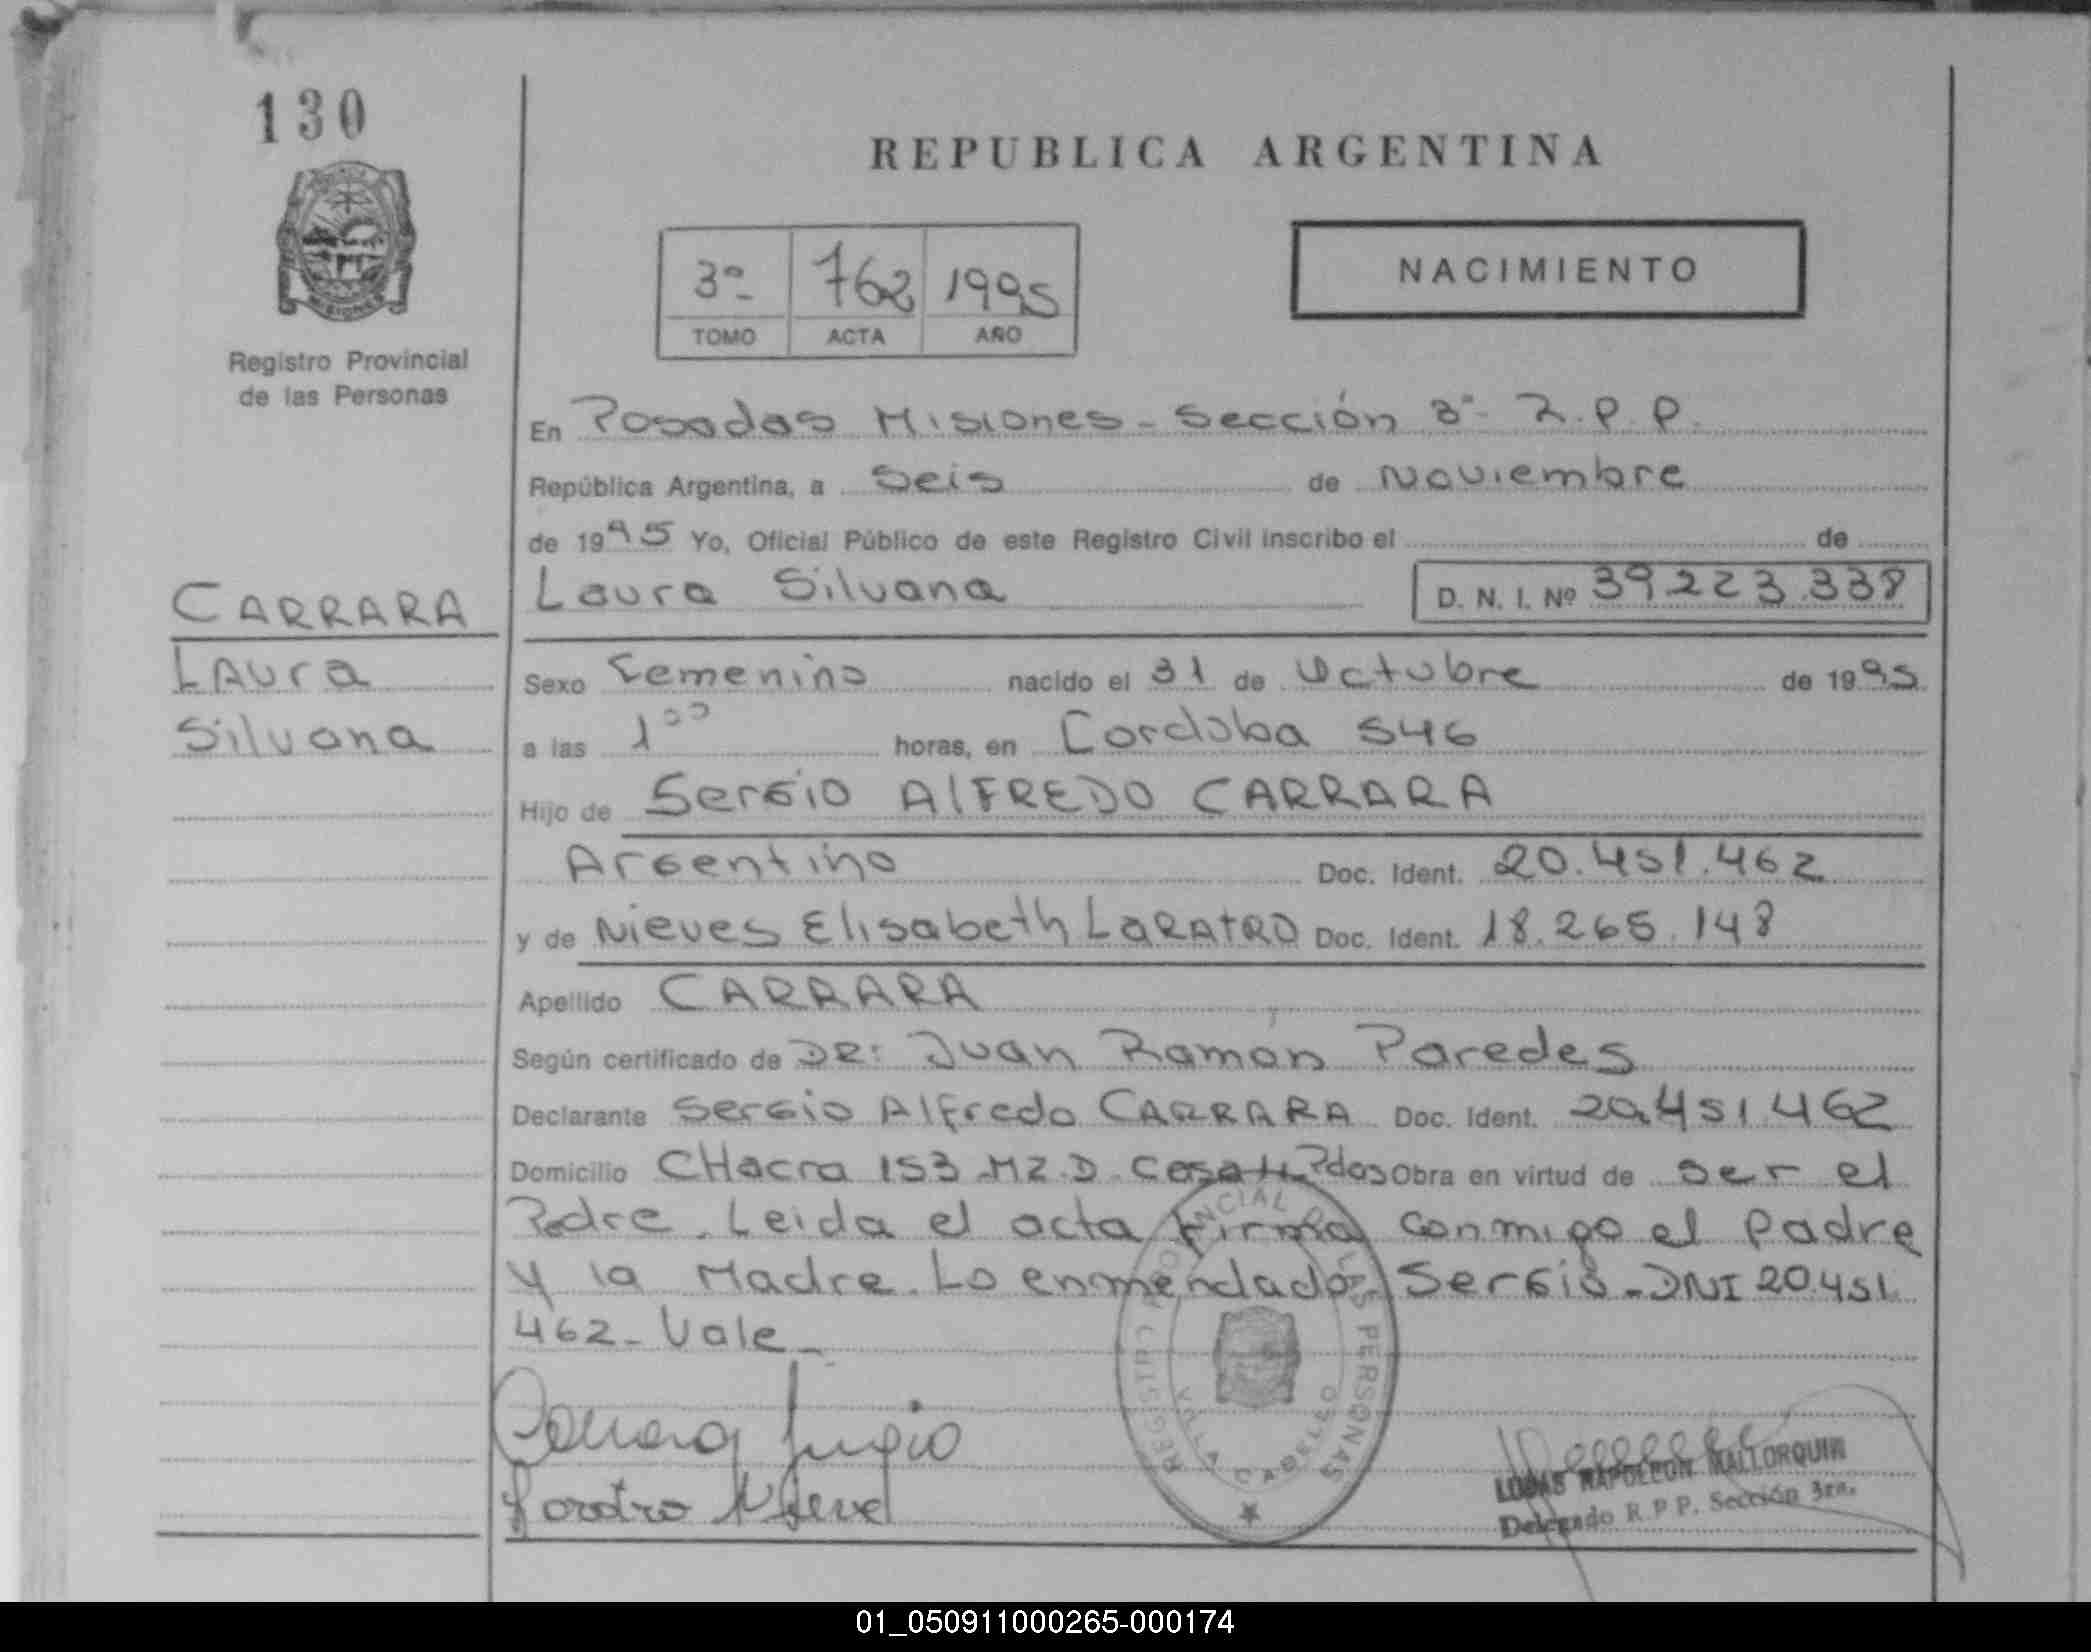 130
REPUBLICA ARGENTINA
3º 762 1995
TOMO ACTA AÑO
NACIMIENTO
Registro Provincial
de las Personas
En Posadas Misiones - Sección 3ª - R.P.P.
República Argentina, a Seis de Noviembre
de 1995 Yo, Oficial Público de este Registro Civil inscribo el de
CARRARA
Laura Silvana D. N. I. Nº 39223.338
Laura
Sexo Femenino nacido el 31 de Octubre de 1995
Silvana
a las 1⁰⁰ horas, en Cordoba 546
Hijo de Sergio ALFREDO CARRARA
Argentino Doc. Ident. 20.451.462
y de Nieves Elisabeth LARATRO Doc. Ident. 18.265.148
Apellido CARRARA
Según certificado de DR: Juan Ramón Paredes
Declarante Sergio Alfredo CARRARA Doc. Ident. 20.451.462
Domicilio CHacra 153 MZ.D. Casa Pdas Obra en virtud de ser el
Padre. Leida el acta firma conmigo el padre
y la Madre. Lo enmendado: Sergio - DNI 20.451.
462 - Vale -
Carrara Sergio
Laratro Nieve
REGISTRO PROVINCIAL DE LAS PERSONAS
VILLA CABELLO
LUCAS NAPOLEON MALLORQUIN
Delegado R.P.P. Sección 3ra.
01_050911000265-000174